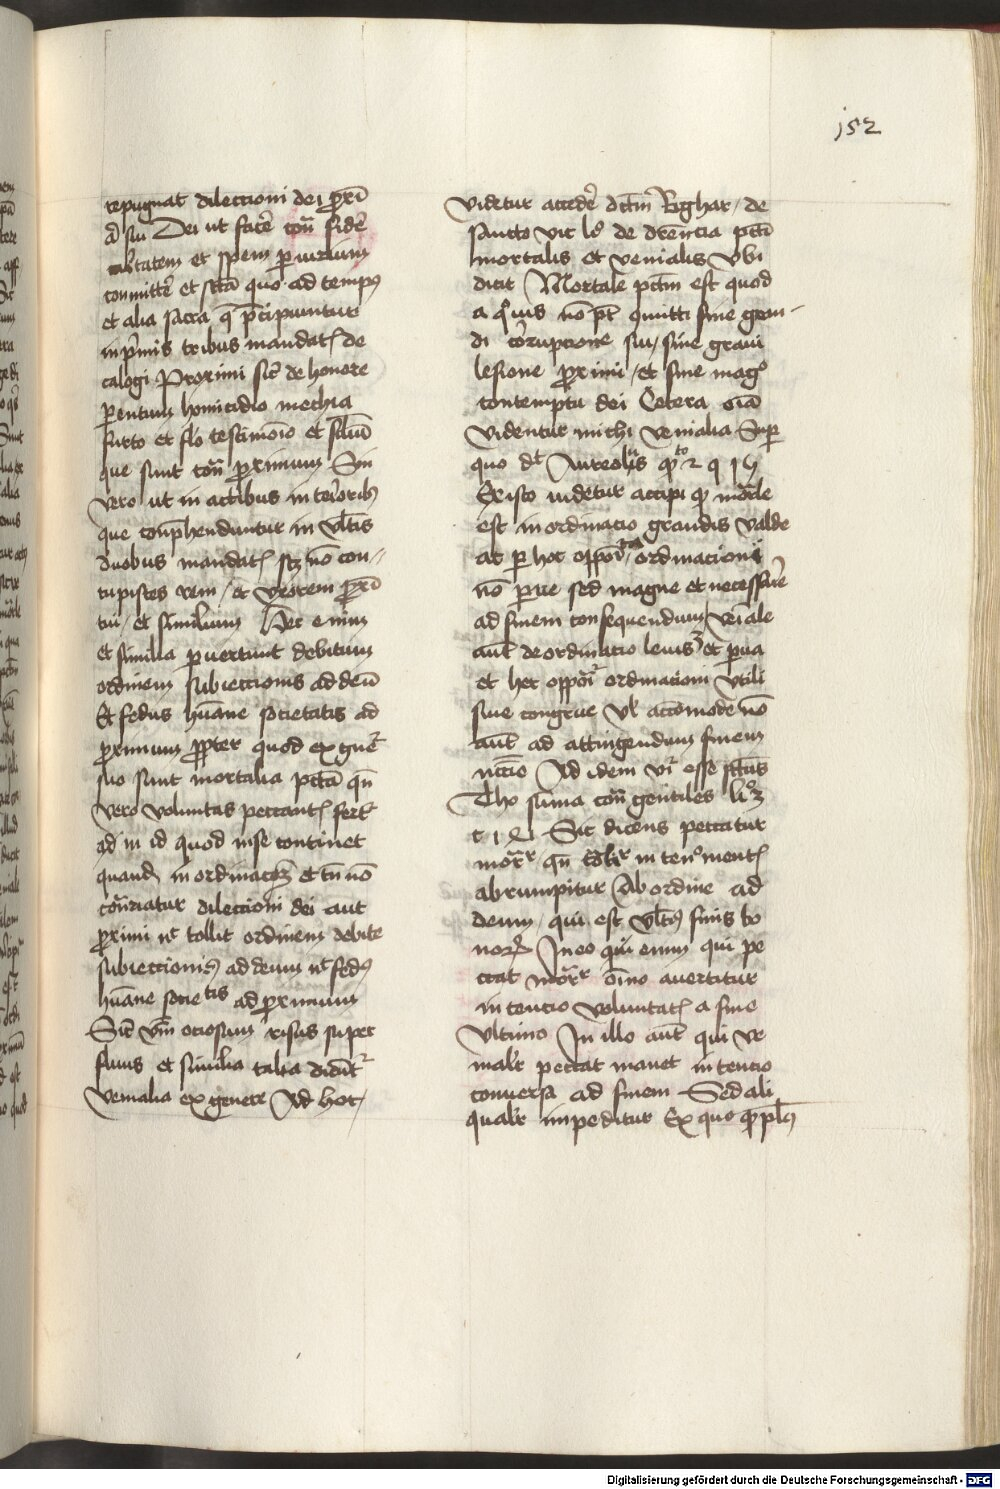 152
repugnat dilectioni dei pximi
a sui Dei ut facere contra fidem
caritatem et spem piurium
committere et scta quo ad tempus
et alia sacra que precipiuntur
in primis tribus mandatis de
calogi Proximi sicut de honore
parentum homicidio mechia
furto et flo testimonio et simili
que sunt contra proximum Sin
vero ut in actibus interioribus
que comprehenduntur in ultimis
duobus mandatis scz no con-
cupisces rem / et uxorem pximi
tui / et similium Hec enim
et similia pervertunt debitum
ordinem subiectionis ad deum
Et fedus humane societatis ad
proximum propter quod ex genere
suo sunt mortalia peccata quando
vero voluntas peccantis fertur
ad in id quod in se continet
quandam inordinationem et tamen no
contrariatur dilectioni dei aut
proximi nec tollit ordinem debite
subiectionis ad deum nec fedus
humane societatis ad proximum
Sicut verbum ociosum risus super
fluus et similia talia dicuntur
Venialia ex genere Ad hoc
videtur accedere dictum Righar / de
sancto vic lo de differencia peccati
mortalis et venialis Ubi
dicit Mortale peccatum est quod
a quovis no potest committi sine gran-
di corrupcione sui / sine gravi
lesione proximi / et sine magno
contemptu dei Cetera omnia
videntur michi venialia Super
quo dicit Aureolus
Ex isto videtur accipi quod mortale
est inordinacio grandis valde
ac per hoc opponitur ordinacioni
no parve sed magne et necessarie
ad finem consequendum Veniale
autem deordinatio levis et parva
et hec opponitur ordinacioni utili
sive congrue vel accomode no
autem ad attingendum finem
necessario Ad idem videtur esse sanctus
Tho summa contra gentiles li 3
Sic dicens peccatur
mortaliter quando totaliter intencio mentis
abrumpitur Ab ordine ad
deum / qui est ultimus finis bo
norum In eo quidem enim qui pe
ccat mortaliter omnino avertitur
intencio voluntatis a fine
Ultimo In illo autem qui ve
nialiter peccat manet intencio
conversa ad finem Sed ali
qualiter impeditur Ex quo
Digitalisierung gefördert durch die Deutsche Forschungsgemeinschaft - DFG